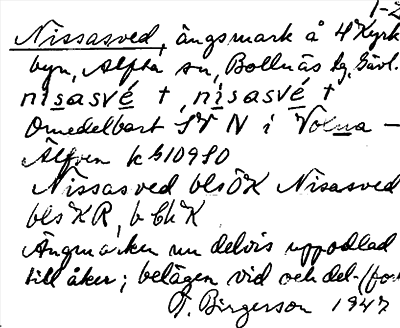 1-2
Nissasved, ängsmark å 4 Kyrk
byn, Alfta sn, Bollnäs tg, Gävl.
nisasvé †, nisasvé †
Omedelbart SV N i Voxna
Älfven kb 10980
Nissasved bls ÖK Nisasved
bls KR, b Ch K
Ängmarken nu delvis uppodlad
till åker; belägen vid och del- (for
T. Birgerson 1947